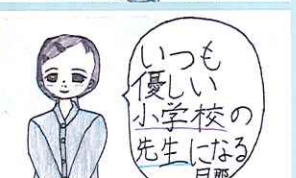 いつも
優しい
小学校の
先生になる